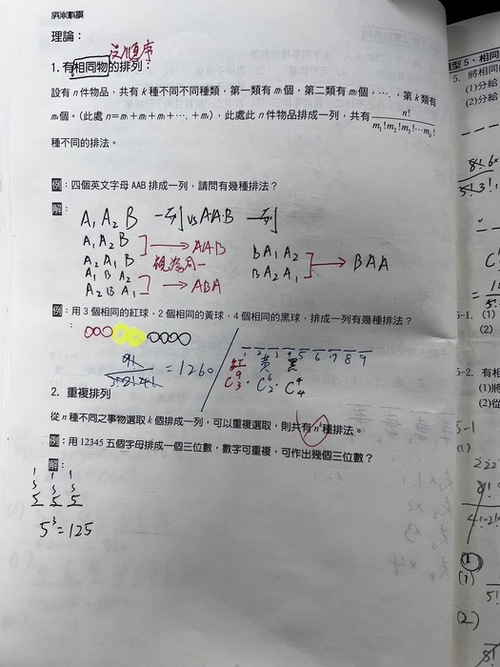 沒順序
理論：
1. 有相同物的排列：
設有 n 件物品，共有 k 種不同不同種類，第一類有 m₁個，第二類有 m₂個，….，第 k 類有
mₖ個。（此處 n＝m₁＋m₂＋m₃＋….＋mₖ），此處此 n 件物品排成一列，共有 n!/(m₁!m₂!m₃!…mₖ!)
種不同的排法。
例：四個英文字母 AAB 排成一列，請問有幾種排法？
解：
A₁ A₂ B 一列 vs AAB 一列
A₁ A₂ B
A₂ A₁ B
→ AAB
視為同一
A₁ B A₂
A₂ B A₁
→ ABA
B A₁ A₂
B A₂ A₁
→ BAA
例：用 3 個相同的紅球，2 個相同的黃球，4 個相同的黑球，排成一列有幾種排法？
9!/(3!2!4!) = 1260
1 2 3 4 5 6 7 8 9
紅 黃 黑
C⁹₃ · C⁶₂ · C⁴₄
2. 重複排列
從 n 種不同之事物選取 k 個排成一列，可以重複選取，則共有 nᵏ種排法。
例：用 12345 五個字母排成一個三位數，數字可重複，可作出幾個三位數？
解：
1 1 1
5 5 5
5³ = 125
型 5、相同
5. 將相同
(1)分給
(2)分給
5-1. (1)
(2)
5-2. 有
(1)
(2)從
5-1
(1)
(1)
(2)